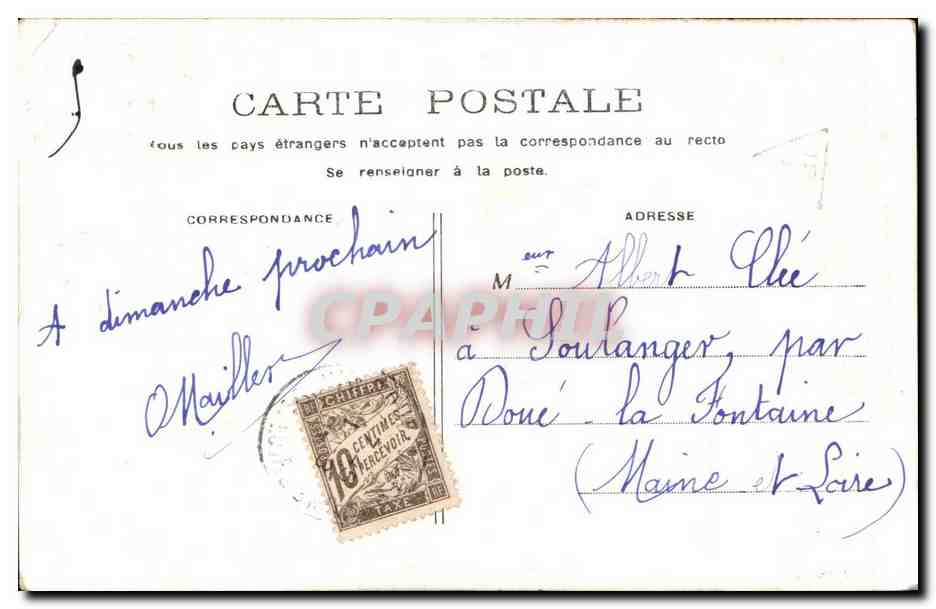 CARTE POSTALE
Tous les pays étrangers n'acceptent pas la correspondance au recto
Se renseigner à la poste.
CORRESPONDANCE
A dimanche prochain
Mailler
ADRESSE
Meur Albert Clée
à Soulanger, par
Doué la Fontaine
(Maine et Loire)
CHIFFRE
10 CENTIMES
A PERCEVOIR
TAXE
CPAPHIL